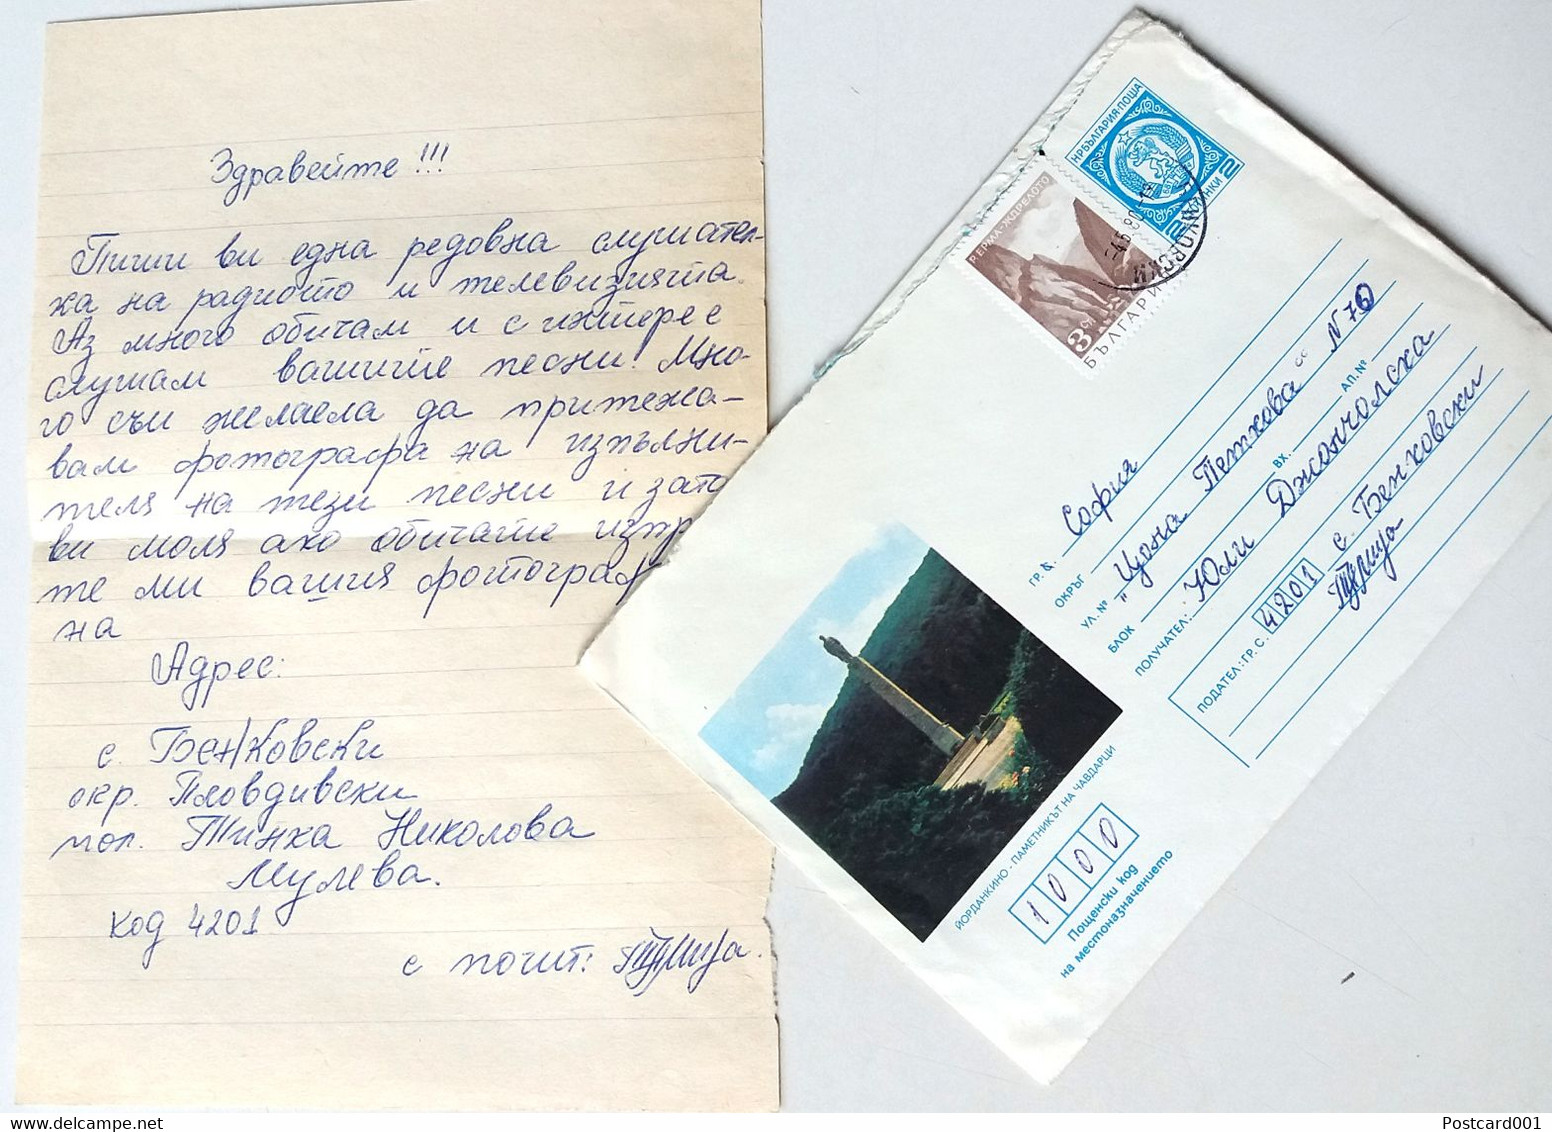 Здравейте!!!
Пиши ви една редовна слушател-
ка на радиото и телевизията.
Аз много обичам и с интерес
слушам вашите песни. Мно-
го съм желаела да притежа-
вам фотографа на изпълни-
теля на тези песни и зато
ви моля ако обичате изпр
те ми вашия фотограф
на
Адрес:
с. Бенковски
окр. Пловдивски
пол. Тинка Николова
Мулева.
код 4201
с почит:
НР БЪЛГАРИЯ·ПОЩА
2 СТОТИНКИ 2
Р. ЕРМА-ЖДРЕЛОТО
3 СТ
БЪЛГАРИЯ
-4.6.80-
ГР. С. София
ОКРЪГ
УЛ. № "Цона Петкова" N 70
БЛОК ВХ. АП. №
ПОЛУЧАТЕЛ: Юли Джончолска
ПОДАТЕЛ: ГР. С. 4201 с. Бенковски
ЙОРДАНКИНО - ПАМЕТНИКЪТ НА ЧАВДАРЦИ
1000
Пощенски код
на местоназначението
Postcard001